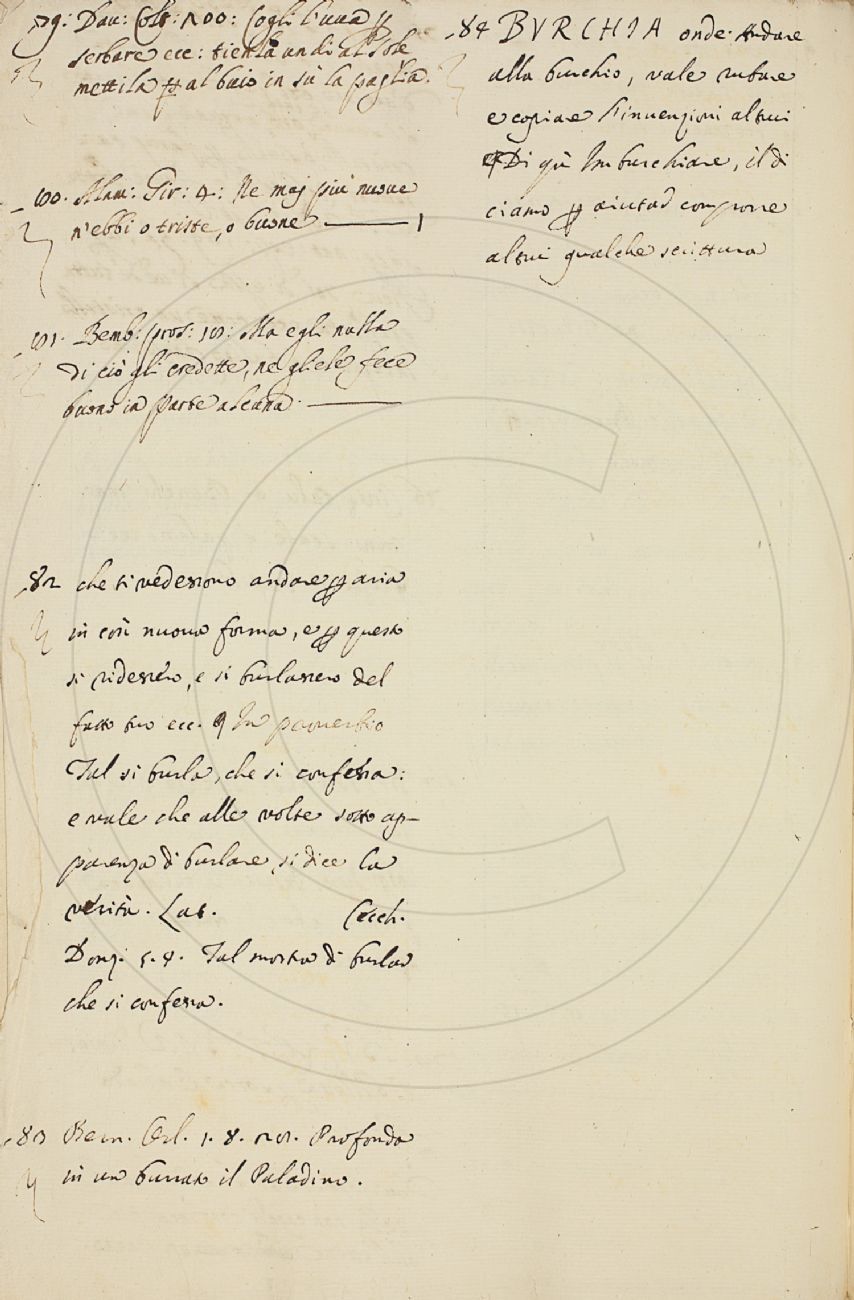 79: Dav: Colt: 200: Cogli l'uva p
serbare ecc: tienla un dì al sole
mettila al buio in sù la paglia.
80. Alam: Gir: 4: Ne mai più nuove
n'ebbi o triste, o buone
81. Bemb: pros: 101: Ma egli nulla
di ciò gli credette, ne gliele fece
buono in parte alcuna.
82 che si vedessono andare p aria
in così nuova forma, e p questo
si ridessero, e si burlassero del
fatto suo ecc. In proverbio
Tal si burla, che si confessa:
e vale che alle volte sotto ap-
parenza di burlare, si dice la
verità. Lat. Cecch.
Donz. 5. 4. Tal mostra di burlar
che si confessa.
83 Bern. Orl. 1. 8. Profonda
in un burrato il Paladino.
84 BVRCHIA onde andare
alla burchia, vale rubare
e copiare l'invenzioni altrui
Di quì Imburchiare, il di
ciamo p aiutar comporre
altrui qualche scrittura